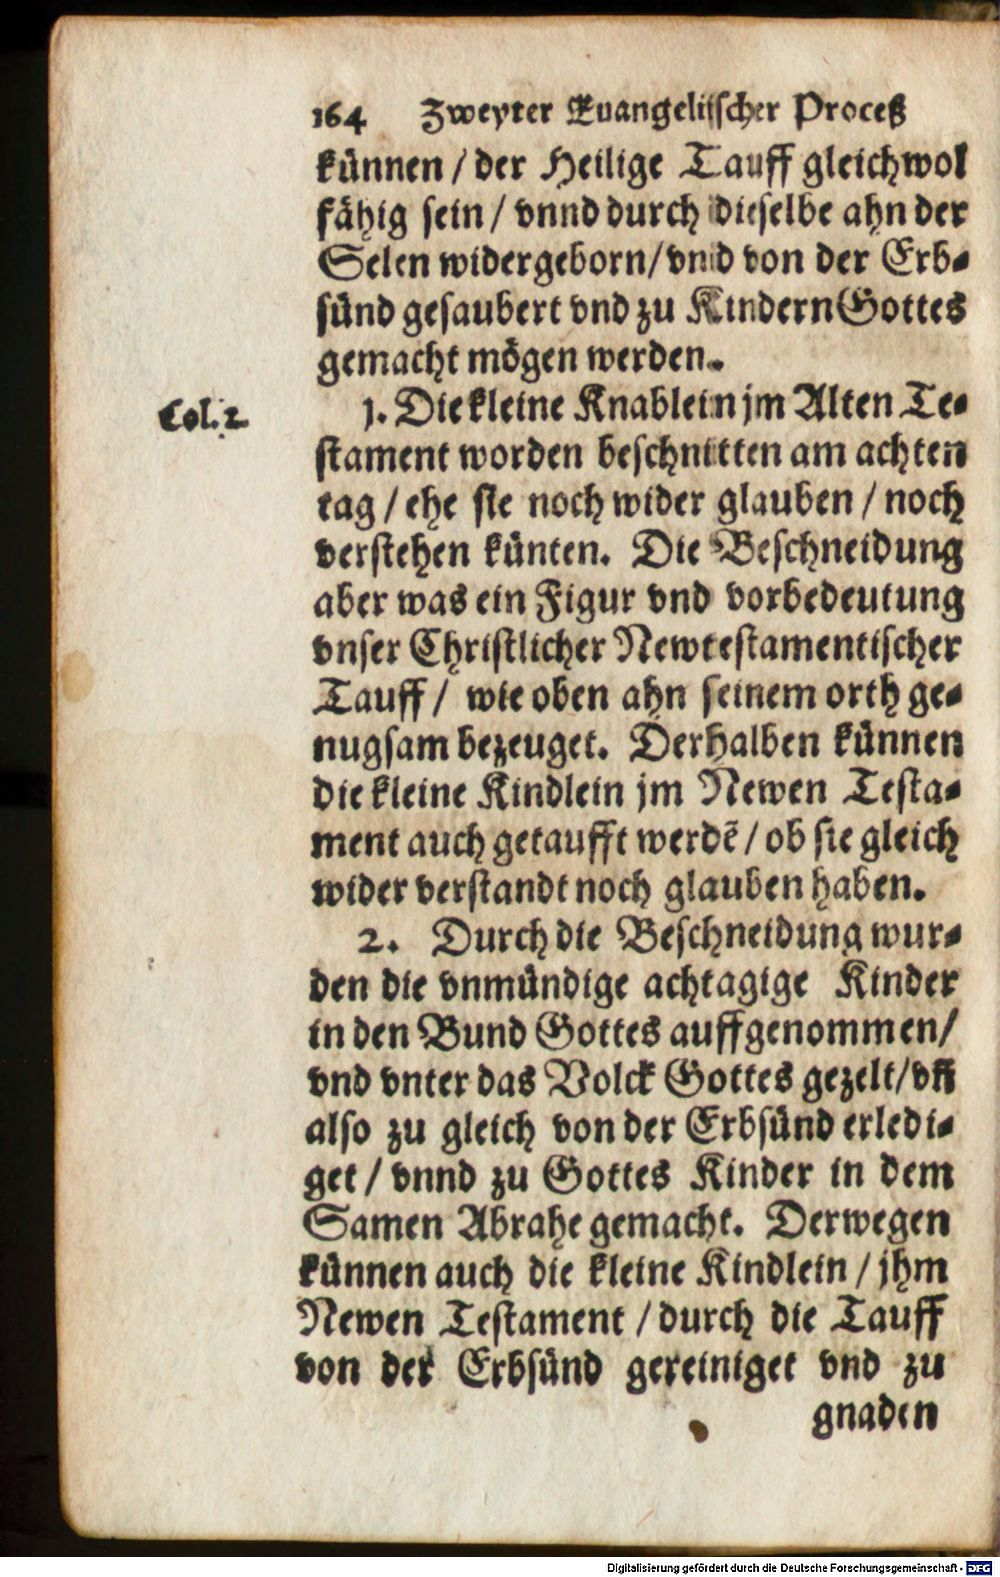 164 Zweyter Euangelischer Proceß
künnen / der Heilige Tauff gleichwol
fähig sein / vnnd durch dieselbe ahn der
Selen widergeborn/ vnd von der Erb-
sünd gesaubert vnd zu Kindern Gottes
gemacht mögen werden.
Col. 2.
1. Die kleine Knablein jm Alten Te-
stament worden beschnitten am achten
tag / ehe sie noch wider glauben / noch
verstehen künten. Die Beschneidung
aber was ein Figur vnd vorbedeutung
vnser Christlicher Newtestamentischer
Tauff / wie oben ahn seinem orth ge-
nugsam bezeuget. Derhalben künnen
die kleine Kindlein jm Newen Testa-
ment auch getaufft werdẽ / ob sie gleich
wider verstandt noch glauben haben.
2. Durch die Beschneidung wur-
den die vnmündige achtagige Kinder
in den Bund Gottes auffgenommen/
vnd vnter das Volck Gottes gezelt/ vñ
also zu gleich von der Erbsünd erledi-
get / vnnd zu Gottes Kinder in dem
Samen Abrahe gemacht. Derwegen
künnen auch die kleine Kindlein / jhm
Newen Testament / durch die Tauff
von der Erbsünd gereiniget vnd zu
gnaden
Digitalisierung gefördert durch die Deutsche Forschungsgemeinschaft - DFG